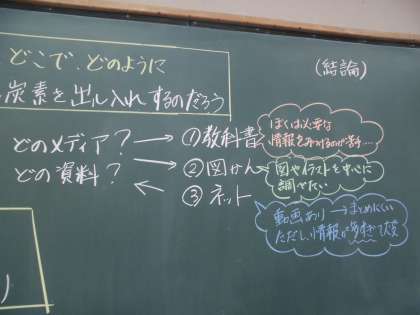 どこで、どのように
炭素を出し入れするのだろう
(結論)
どのメディア?
どの資料?
①教科書
②図かん
③ネット
ぼくは必要な
情報をみつけるのが苦手…
図やイラストを中心に
調べたい
動画あり→まとめにくい
ただし、情報が多すぎて大変